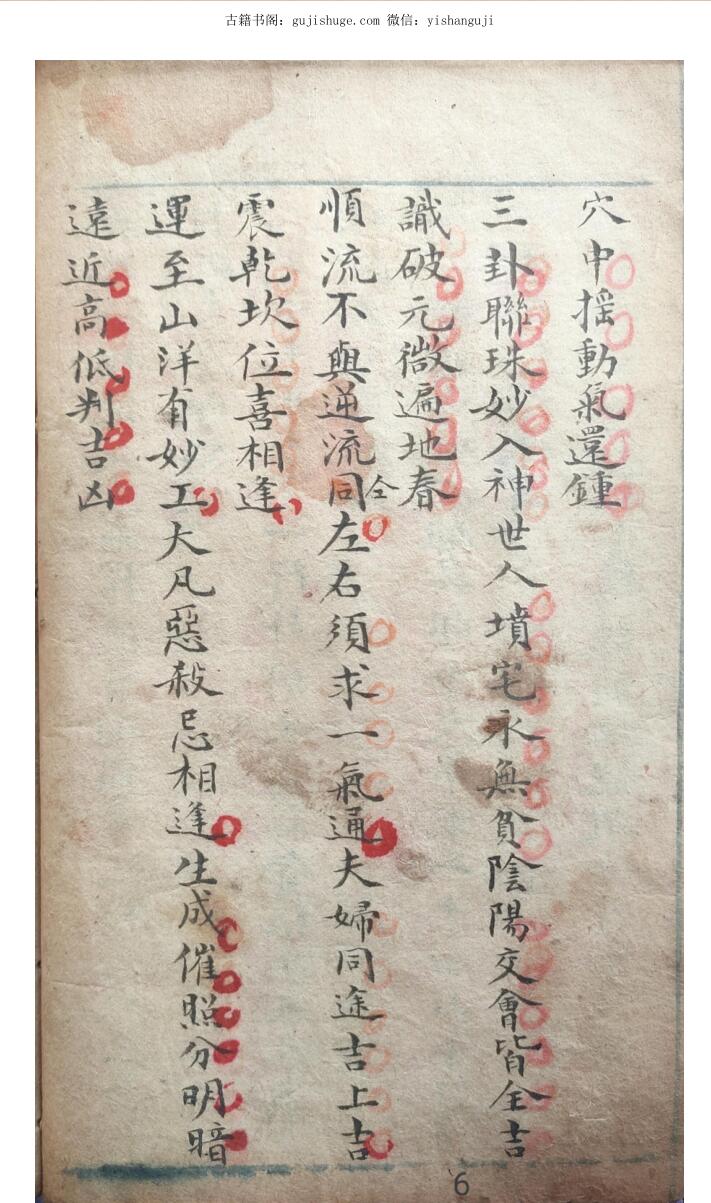 古籍书阁：gujishuge.com 微信：yishanguji
穴中摇動氣還鍾
三卦聯珠妙入神世人墳宅永無貧陰陽交會皆全吉
識破元微遍地春
順流不與逆流同仝左右須求一氣通夫婦同途吉上吉
震乾坎位喜相逢
運至山洋有妙工大凡惡殺忌相逢生成催照分明暗
遠近高低判吉凶
6